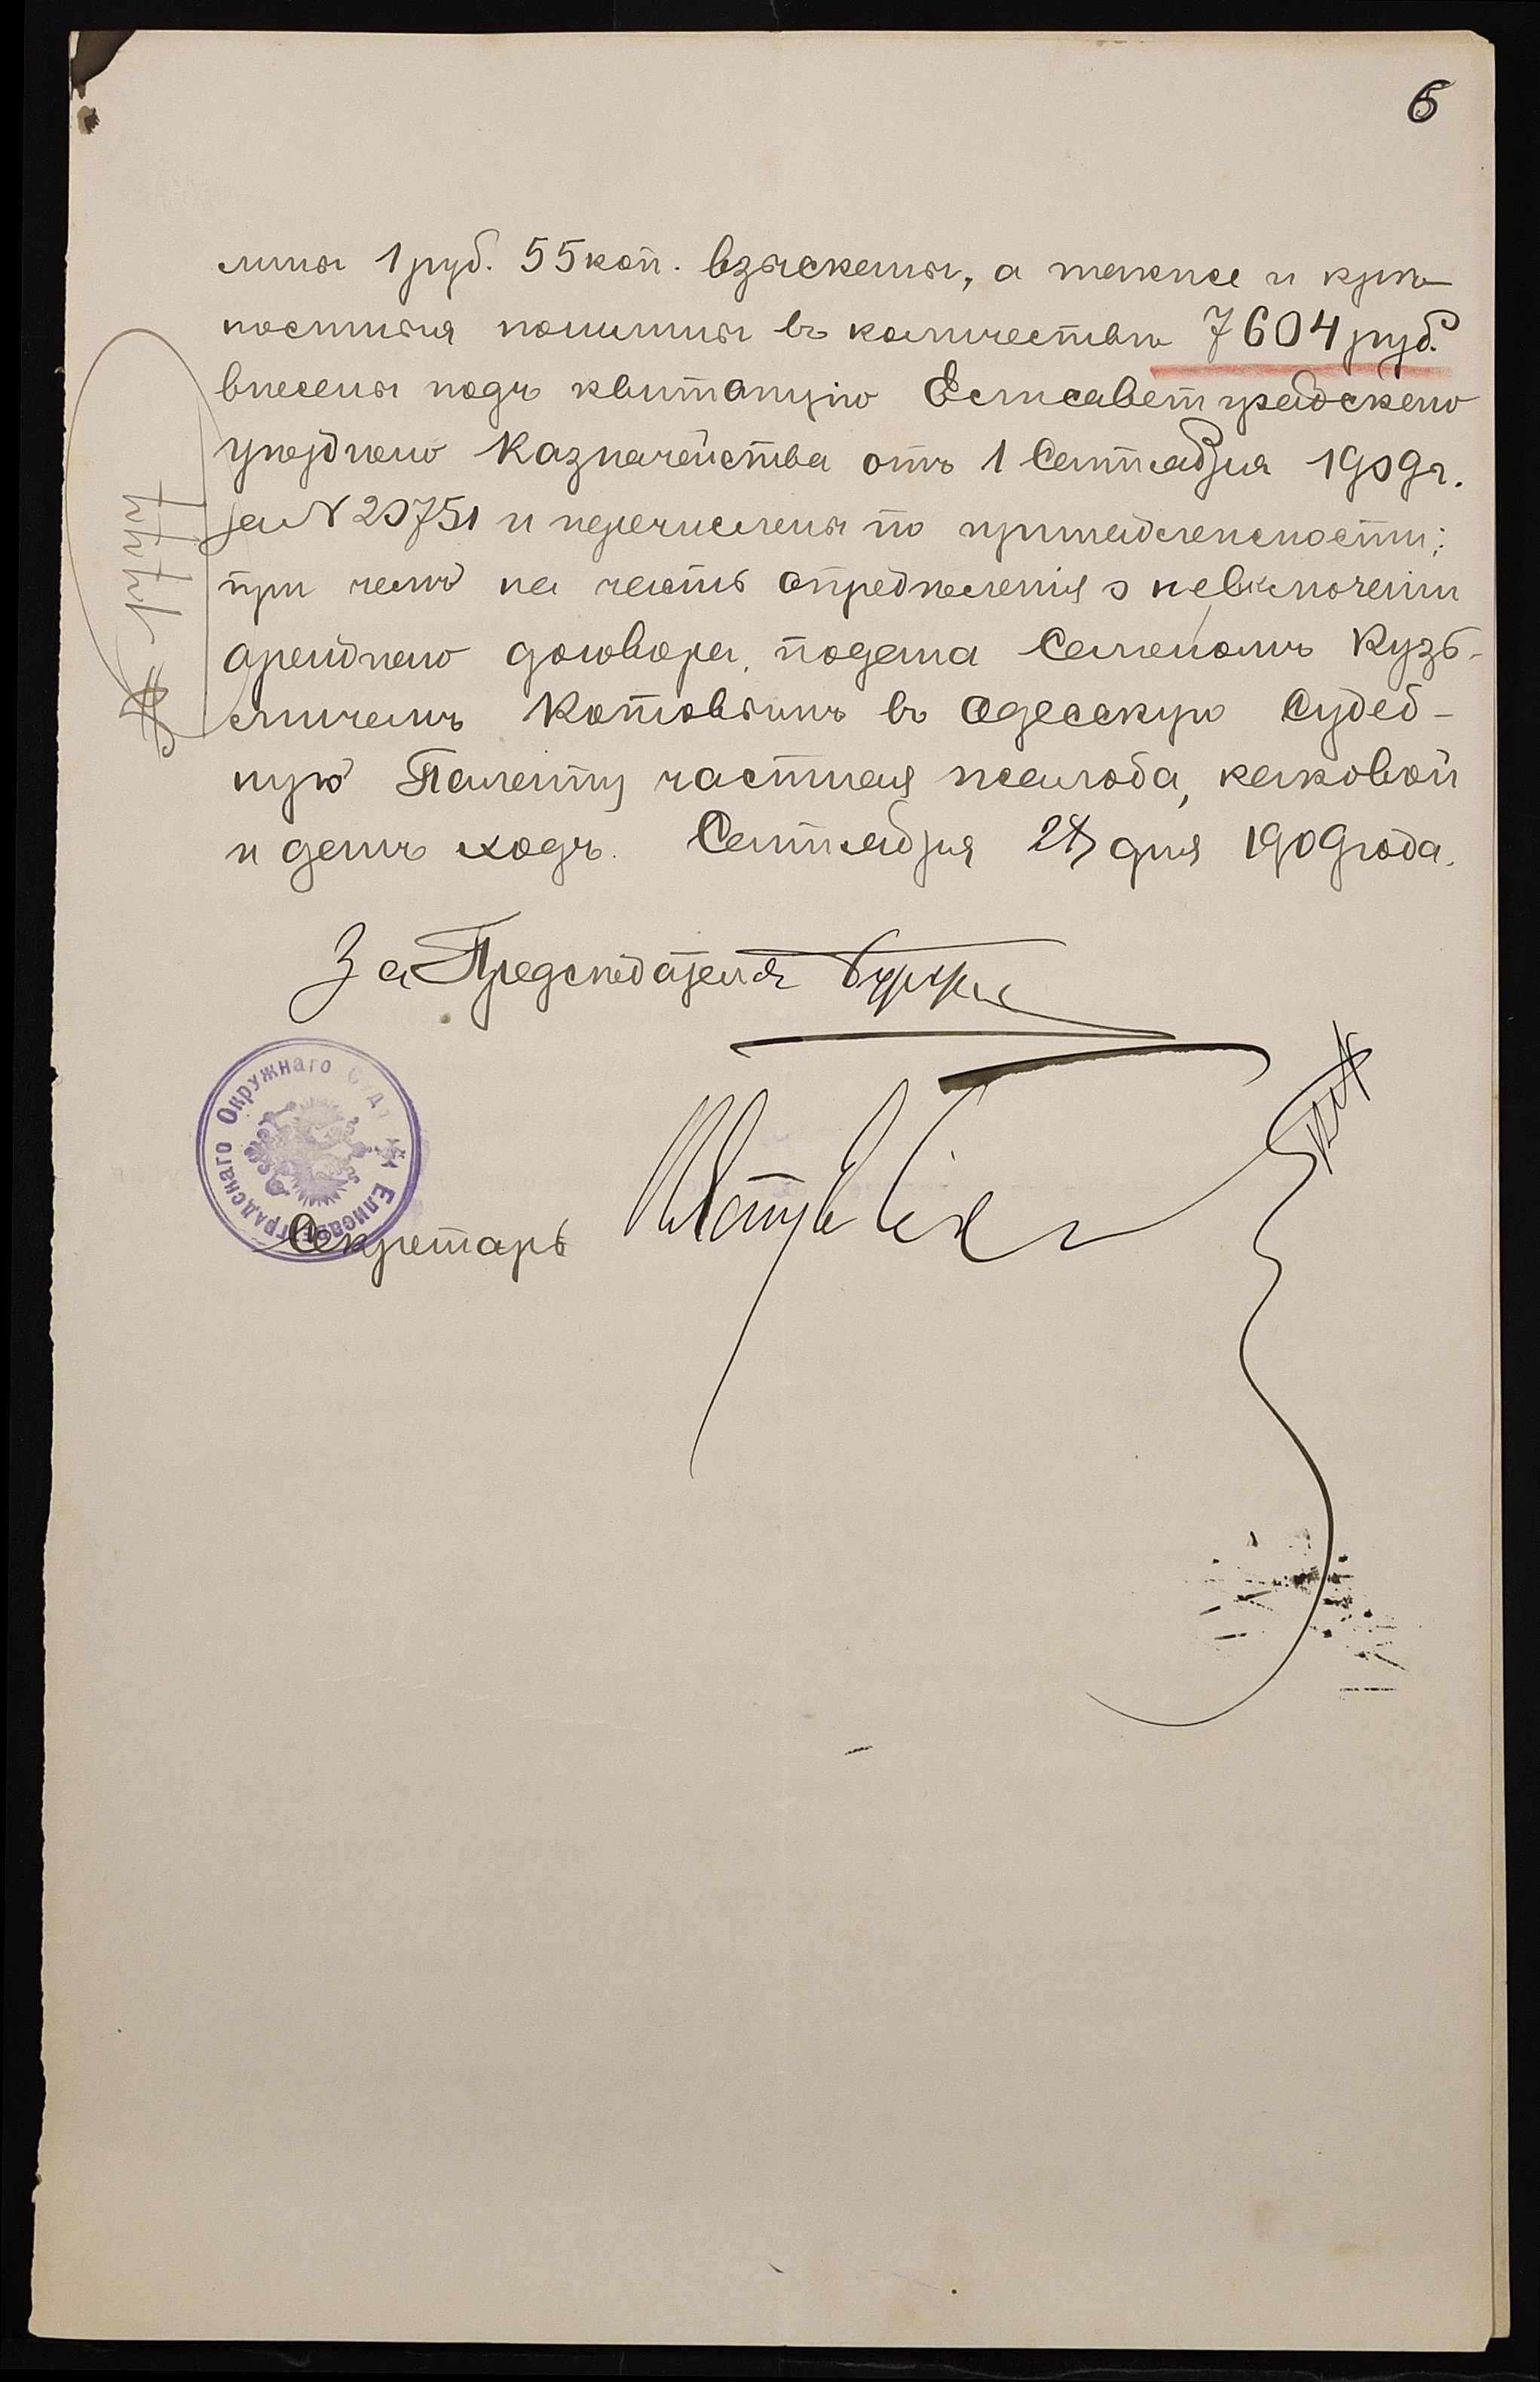 6
лины 1 руб. 55 коп. взысканы, а также и крѣ-
постныя пошлины въ количествѣ 7604 руб.
внесены подъ квитанцію Елисаветградскаго
уѣзднаго Казначейства отъ 1 Сентября 1909 г.
за N 20751 и перечислены по принадлежности;
при чемъ на часть опредѣленія о невключеніи
аренднаго договора, подана Семеномъ Кузь-
мичемъ Котовымъ въ Одесскую Судеб-
ную Палату частная жалоба, каковой
и данъ ходъ. Сентября дня 1909 года.
За Предсѣдателя
Елисаветградскаго Окружнаго Суда
Секретарь